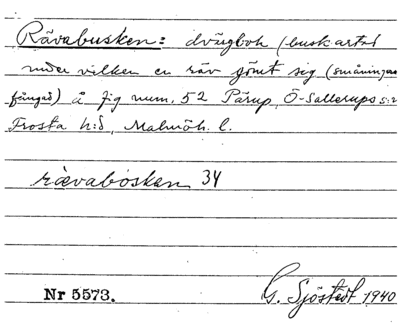 Rävabusken: dvärgbok (buskartad
under vilken en räv gömt sig (småningom
fångad) å fig num. 52 Pärup, Ö-Sallerups s:n
Frosta h:d, Malmöh. l.
rävabosken 34
Nr 5573. G. Sjöstedt 1940